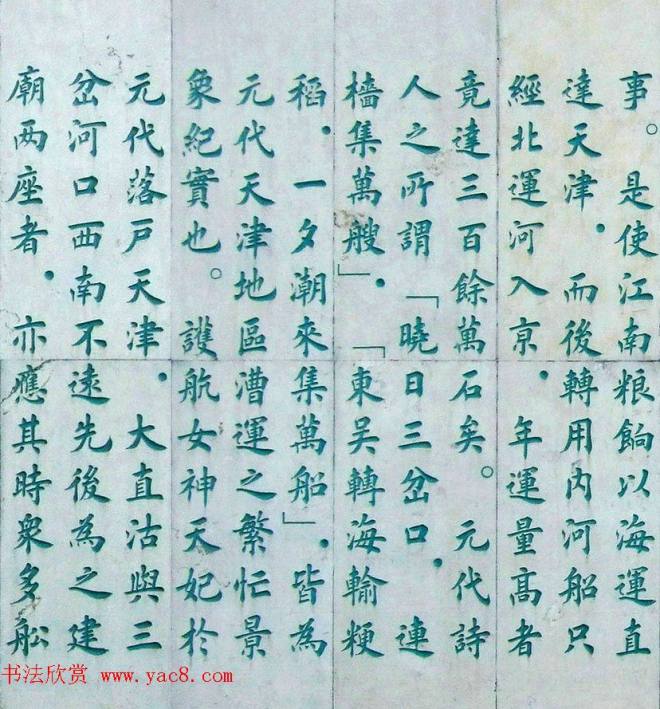 事。是使江南粮餉以海運直
達天津。而後轉用内河船只
經北運河入京。年運量髙者
竟達三百餘萬石矣。元代詩
人之所謂「曉日三岔口。連
檣集萬艘」。「東吴轉海輸粳
稻。一夕潮來集萬船」。皆為
元代天津地區漕運之繁忙景
象紀實也。護航女神天妃於
元代落戸天津。大直沽與三
岔河口西南不遠先後為之建
廟两座者。亦應其時衆多船
书法欣赏 www.yac8.com